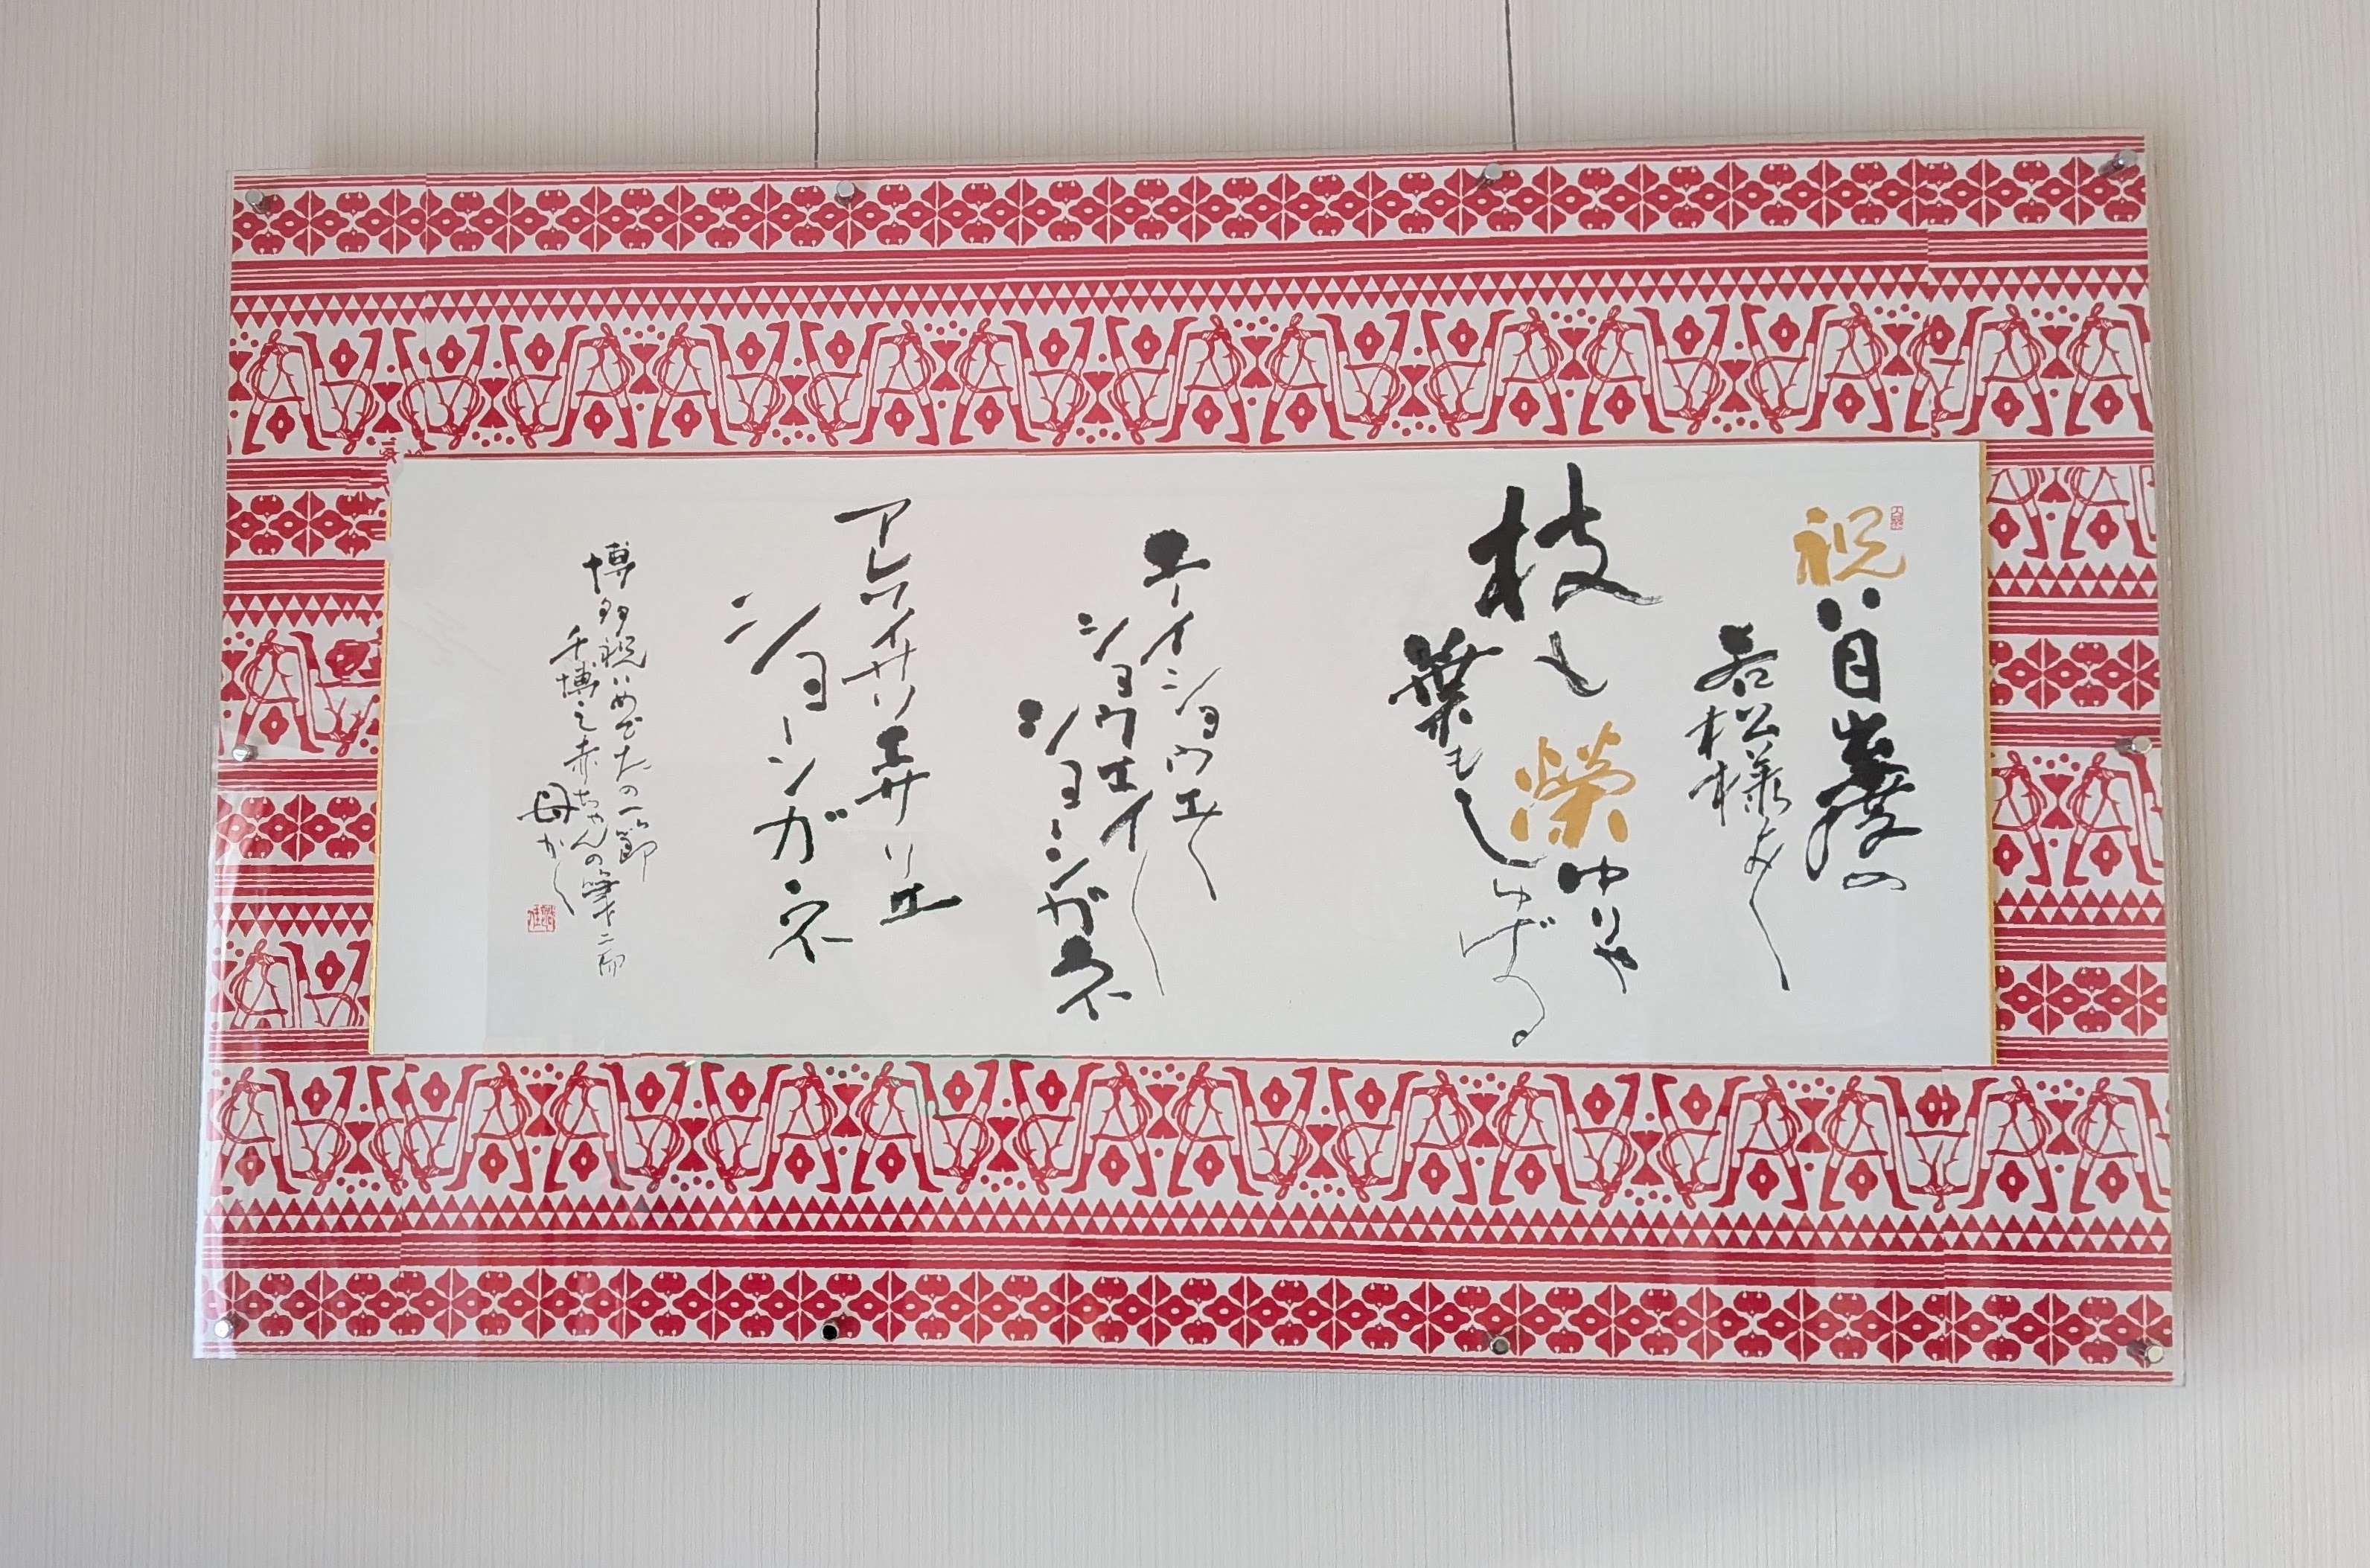 祝い目出度の
若松様よ〳〵
枝も榮ゆりゃ
葉もしゅげる
エーイショウエ〳〵
ショウエイ〳〵
ションガネ
アレワイサソエサソエ
ションガネ
博多祝いめでたの一節
千博之赤ちゃんの筆士二而
母かく